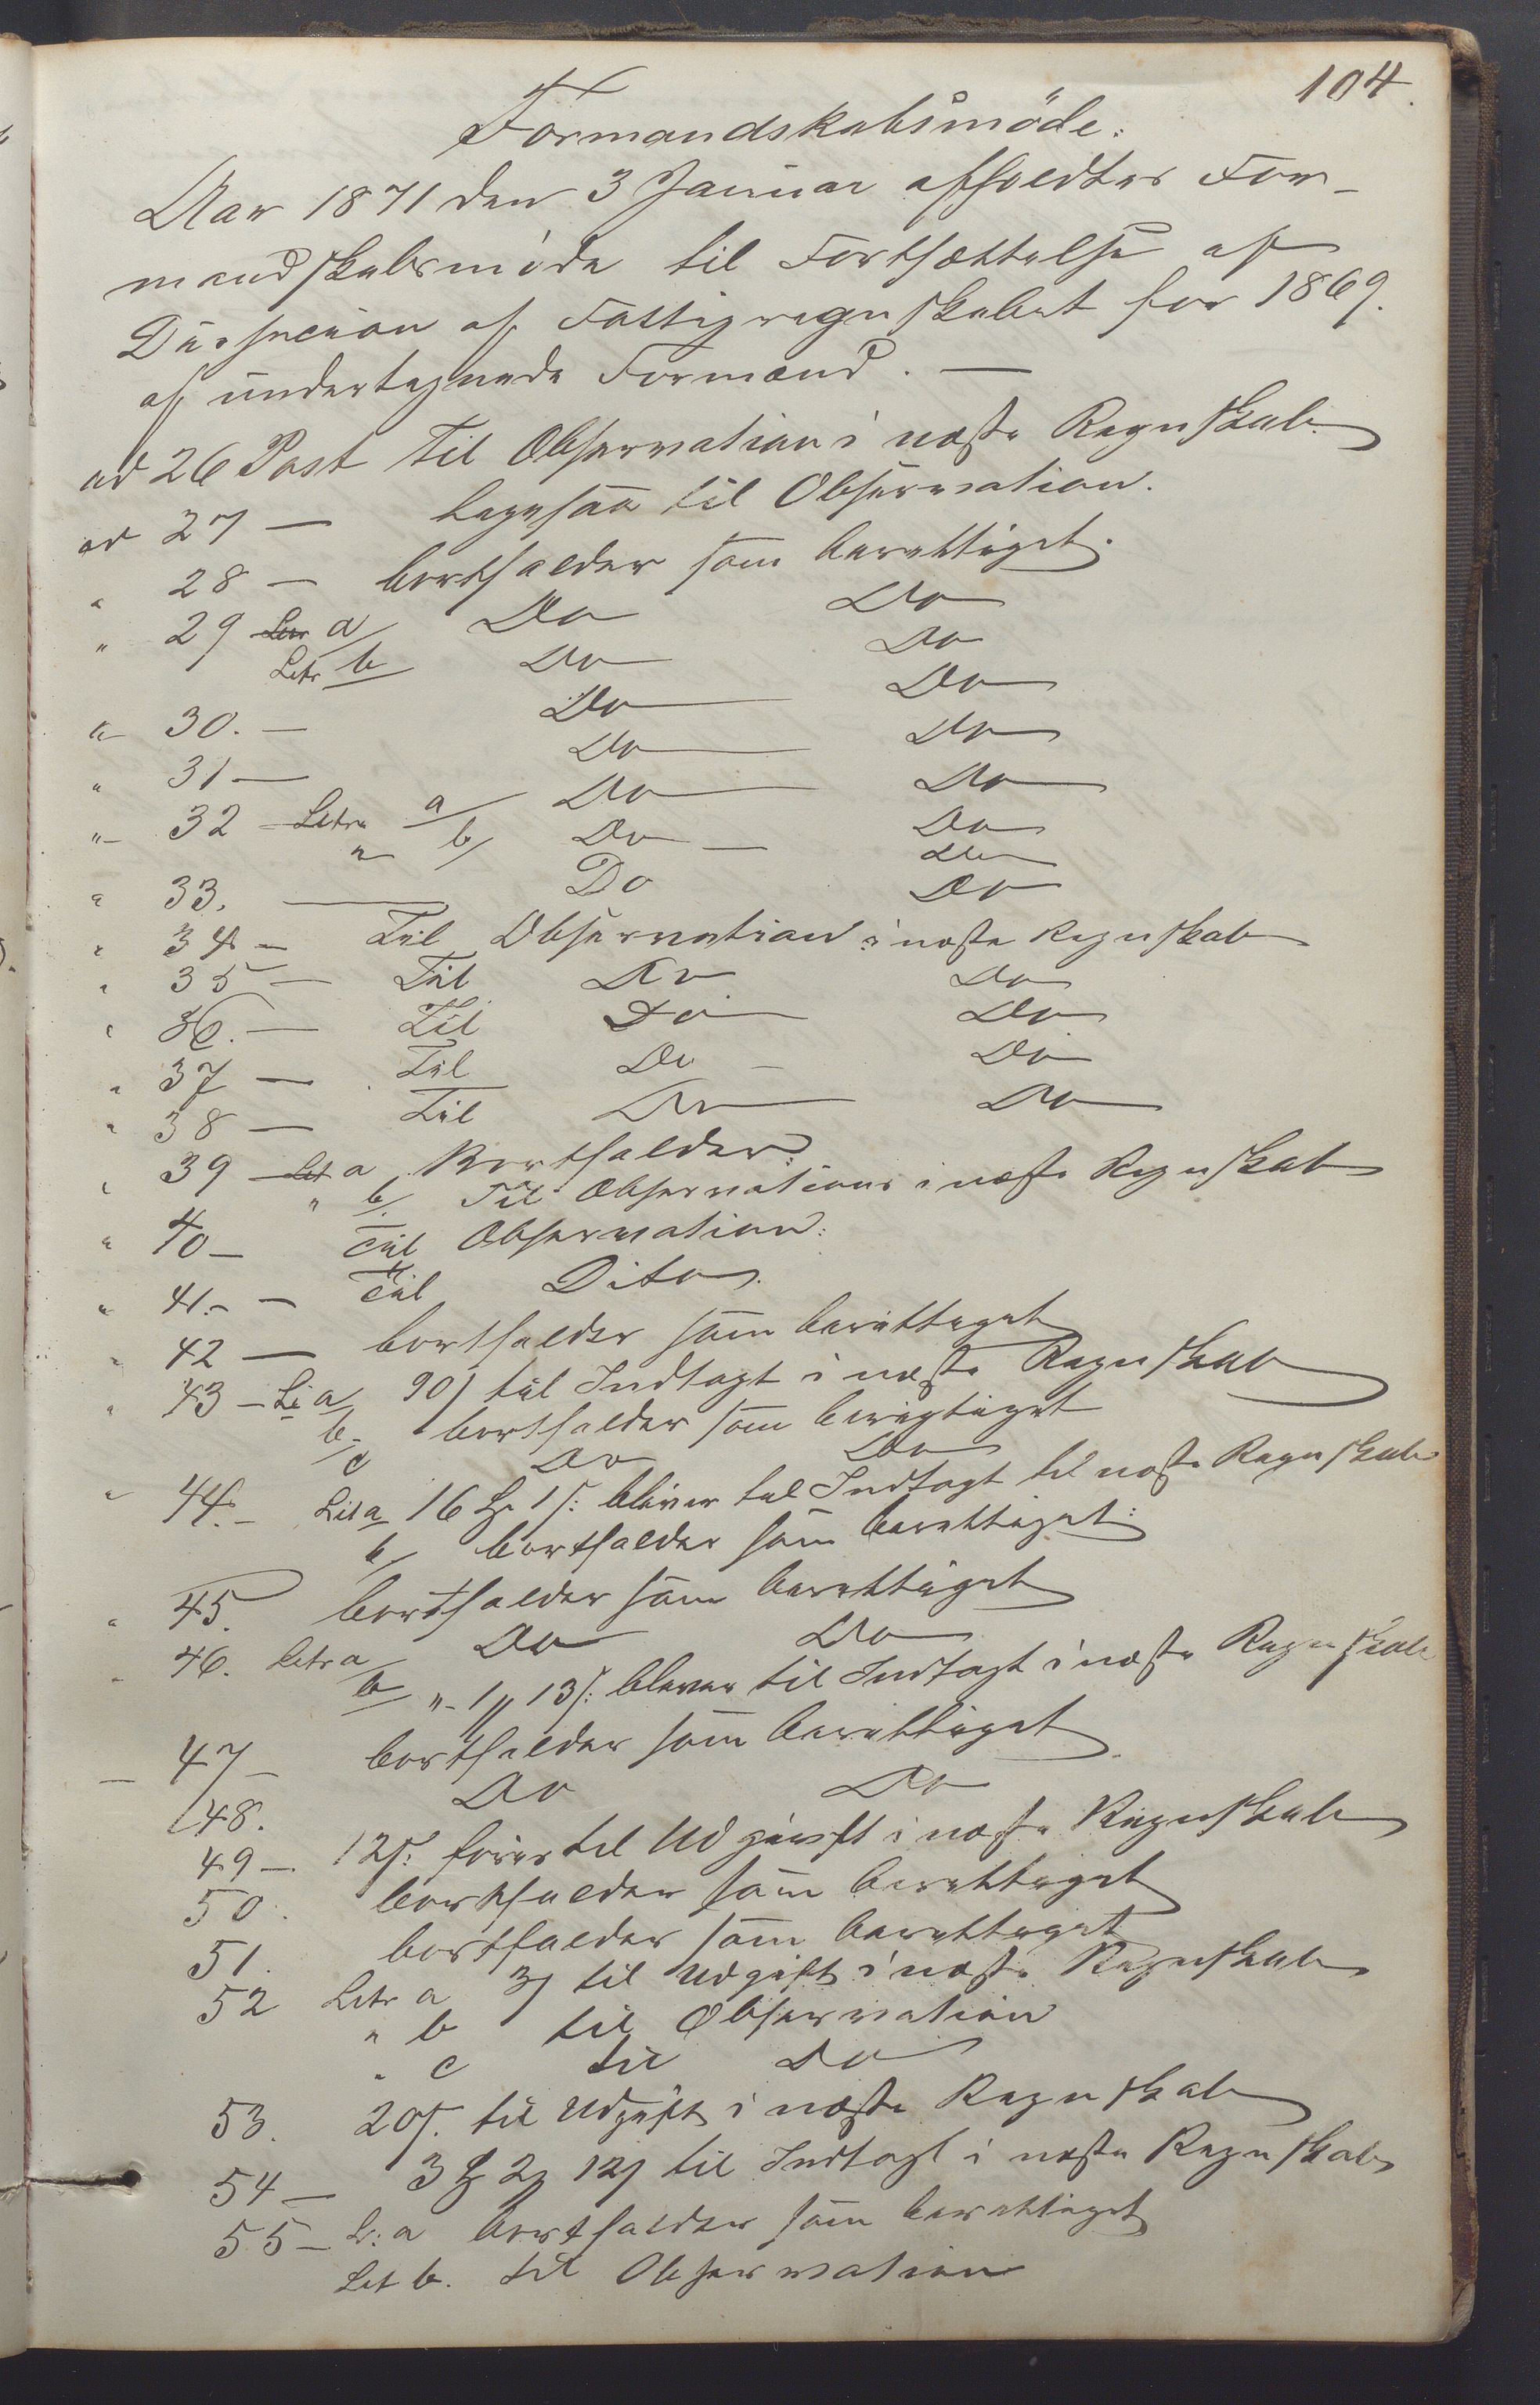 104.
Formandskabsmöde:
Aar 1871 den 3 Januar afholdtes For-
mandskabsmøde til Fortsættelse af
Desicion af Fattigregnskabet for 1869.
af undertegnede Formænd. —
ad 26 Post til Observation i næste Regnskab
ad 27 — ligesaa til Observation.
" 28 — bortfalder som berettiget.
" 29 a/ Do Do
Litr b/ Do Do
" 30. — Do Do
" 31 — Do Do
" 32 — Litra a/ Do Do
" b/ Do — Do
" 33. — Do Do
" 34 — Til Observation i næste Regnskab
" 35 — Til Do Do
" 36. — Til Do Do
" 37 — Til Do Do
" 38 — Til Do Do
" 39 — Lit a Bortfalder:
" b/ Til Observation i næste Regnskab
" 40 — Til Observation:
" 41. — Til Dito.
" 42 — bortfalder som berettiget
" 43 — Li a/ 90 s til Indtægt i næste Regnskab
b. bortfalder som berigtiget
c Do Do
" 44. — Lit a 16 s: bliver til Indtægt til næste Regnskab
b/ bortfalder som berettiget:
" 45. bortfalder som berettiget
" 46. Litr a/ Do Do
b/ " 1 13 s: bliver til Indtægt i næste Regnskab
— 47 — bortfalder som berettiget.
48. Do Do
49 — 12 s: føres til Udgivft i næste Regnskab
50. bortfalder som berettiget
51. bortfalder som berettiget
52 Litr a 3 s til Udgift i næste Regnskab
" b til Observation
" c til Do
53. 20 s. til Udgift i næste Regnskab
54 — 3 2 12 s til Indtægt i næste Regnskab
55 — Lr: a bortfalder som berettiget
Lit b. til Observation